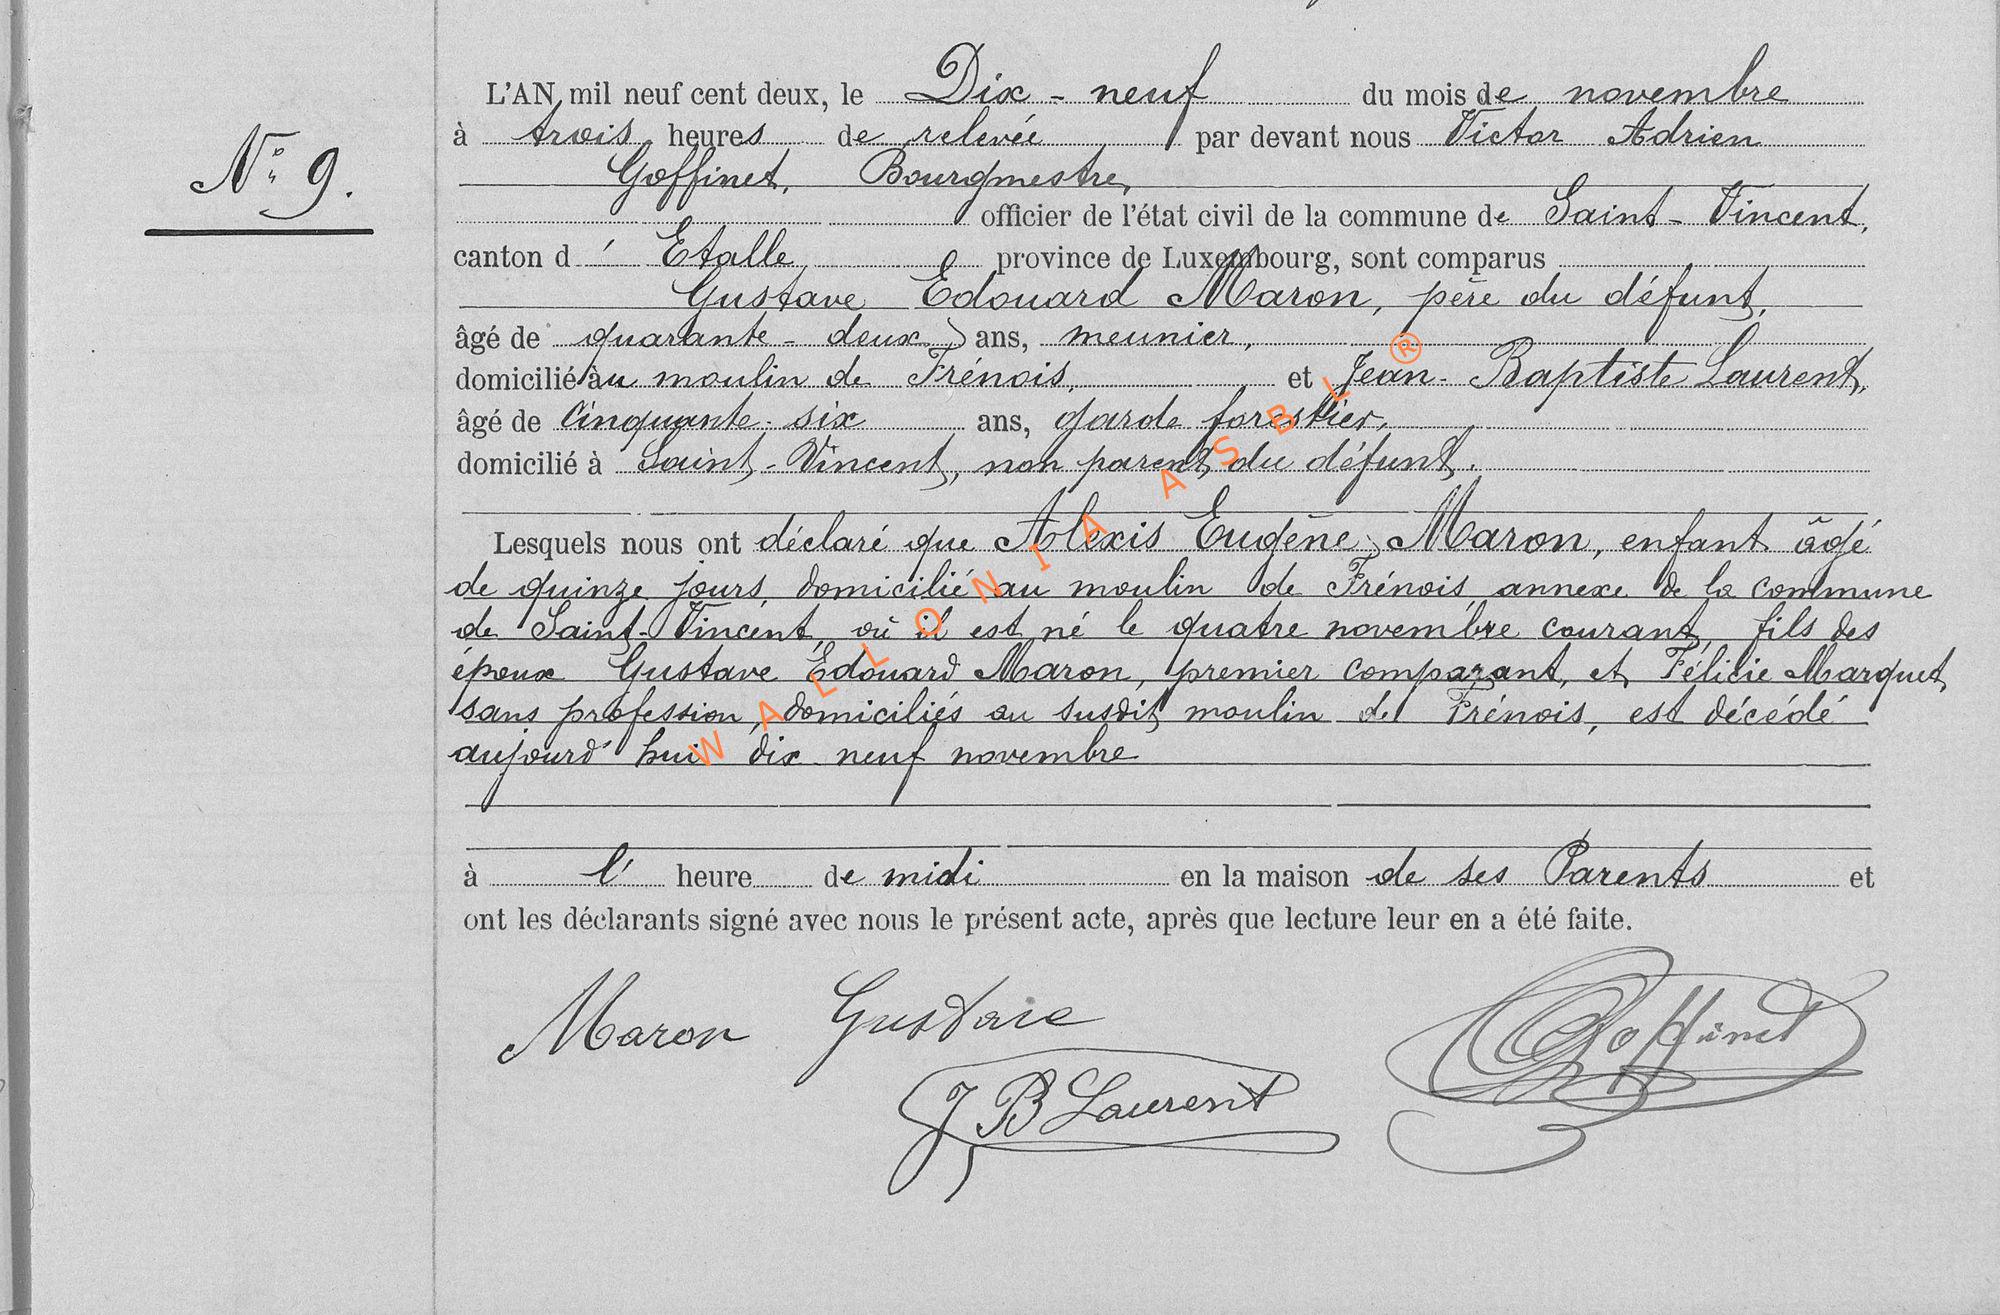 N° 9.
L'AN mil neuf cent deux, le Dix-neuf du mois de novembre
à trois heures de relevée par devant nous Victor Adrien
Goffinet, Bourgmestre,
officier de l'état civil de la commune de Saint-Vincent,
canton d'Etalle, province de Luxembourg, sont comparus
Gustave Edouard Maron, père du défunt,
âgé de quarante-deux ans, meunier,
domicilié au moulin de Frénois, et Jean-Baptiste Laurent,
âgé de cinquante-six ans, garde forestier,
domicilié à Saint-Vincent, non parent du défunt.
Lesquels nous ont déclaré que Alexis Eugène Maron, enfant âgé
de quinze jours, domicilié au moulin de Frénois, annexe de la commune
de Saint-Vincent, où il est né le quatre novembre courant, fils des
époux Gustave Edouard Maron, premier comparant, et Félicie Marquet,
sans profession, domiciliés au susdit moulin de Frénois, est décédé
aujourd'hui dix-neuf novembre
à l'heure de midi en la maison de ses Parents et
ont les déclarants signé avec nous le présent acte, après que lecture leur en a été faite.
Maron Gustave
Goffinet
J B Laurent
WALLONIA ASBL ®